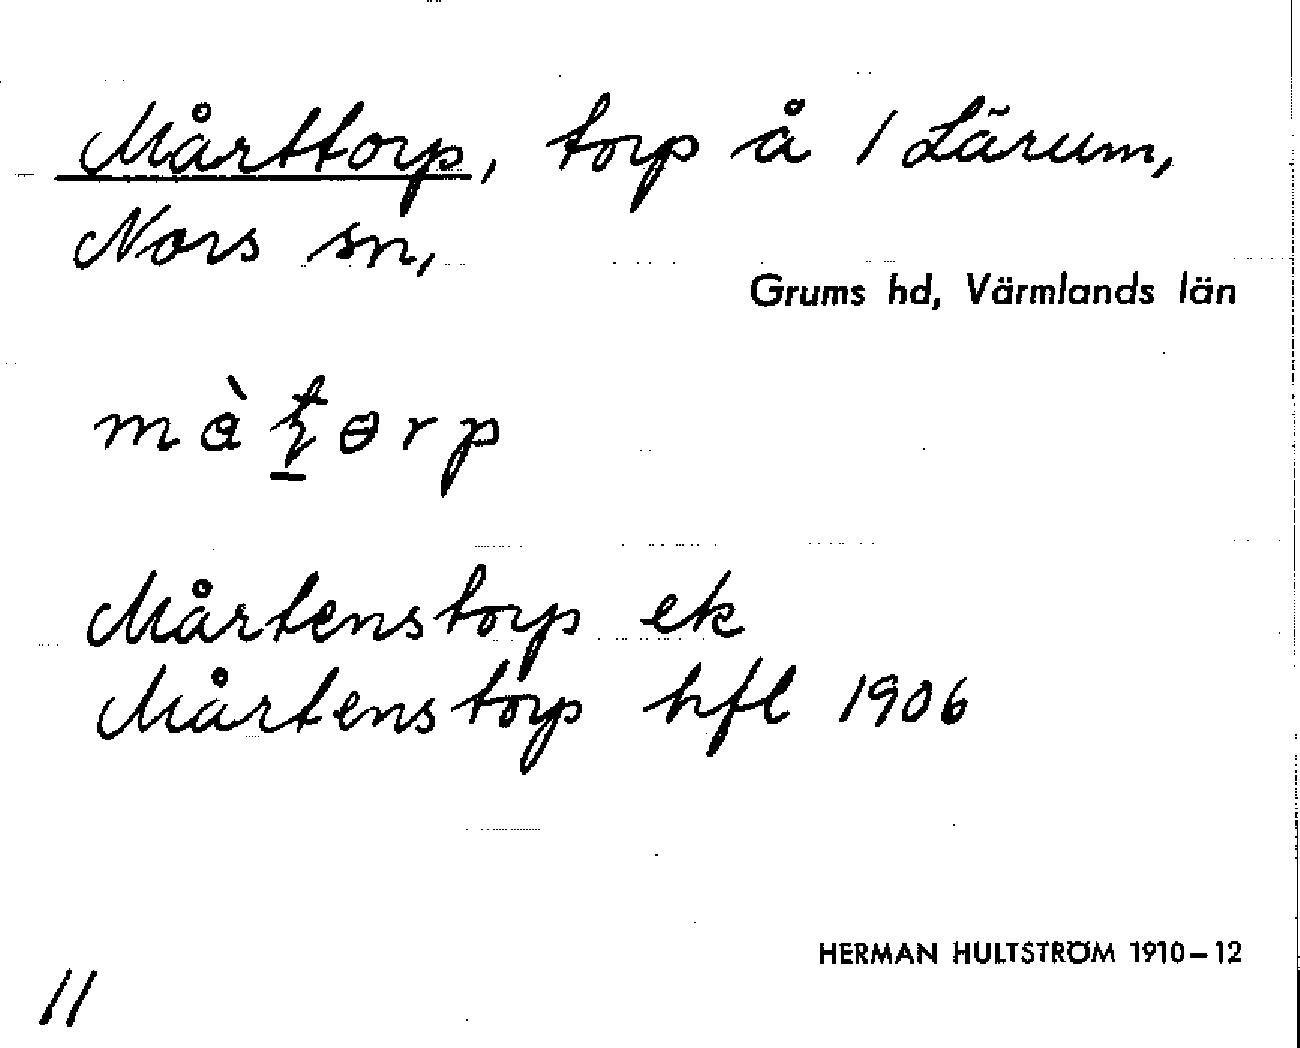 Mårttorp, torp å 1 Lärum,
Nors sn,
Grums hd, Värmlands län
Mårtenstorp ek
Mårtenstorp hfl 1906
HERMAN HULTSTRÖM 1910–12
11